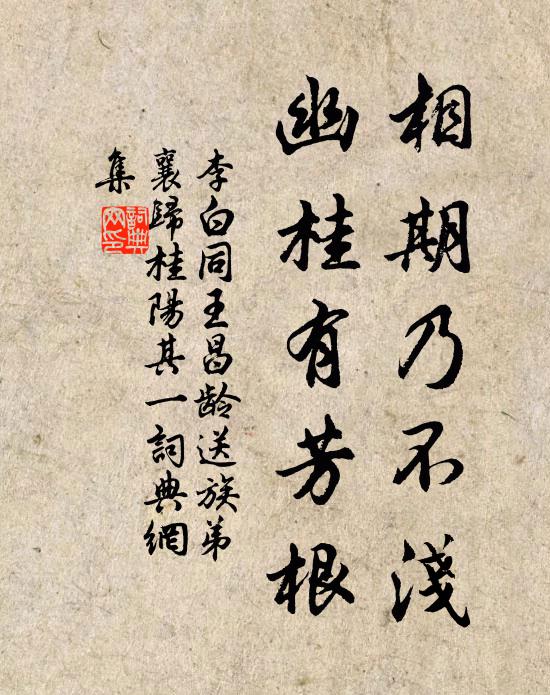 相期乃不淺
幽桂有芳根
李白同王昌龄送族弟
襄歸桂陽其一詞典網
集
詞典
网印